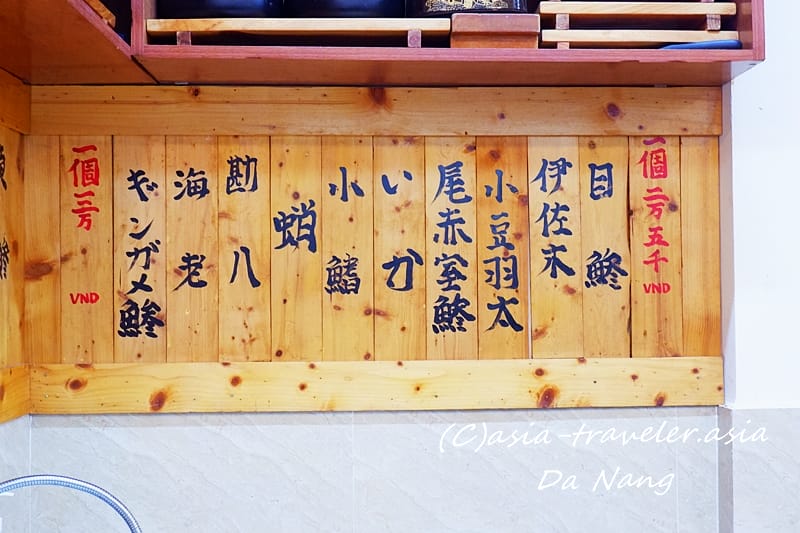 一個 二万五千 VND
目鯵
伊佐木
小豆羽太
尾赤室鯵
いか
小鰭
蛸
勘八
海老
ギンガメ鯵
一個三万 VND
(C)asia-traveler.asia
Da Nang